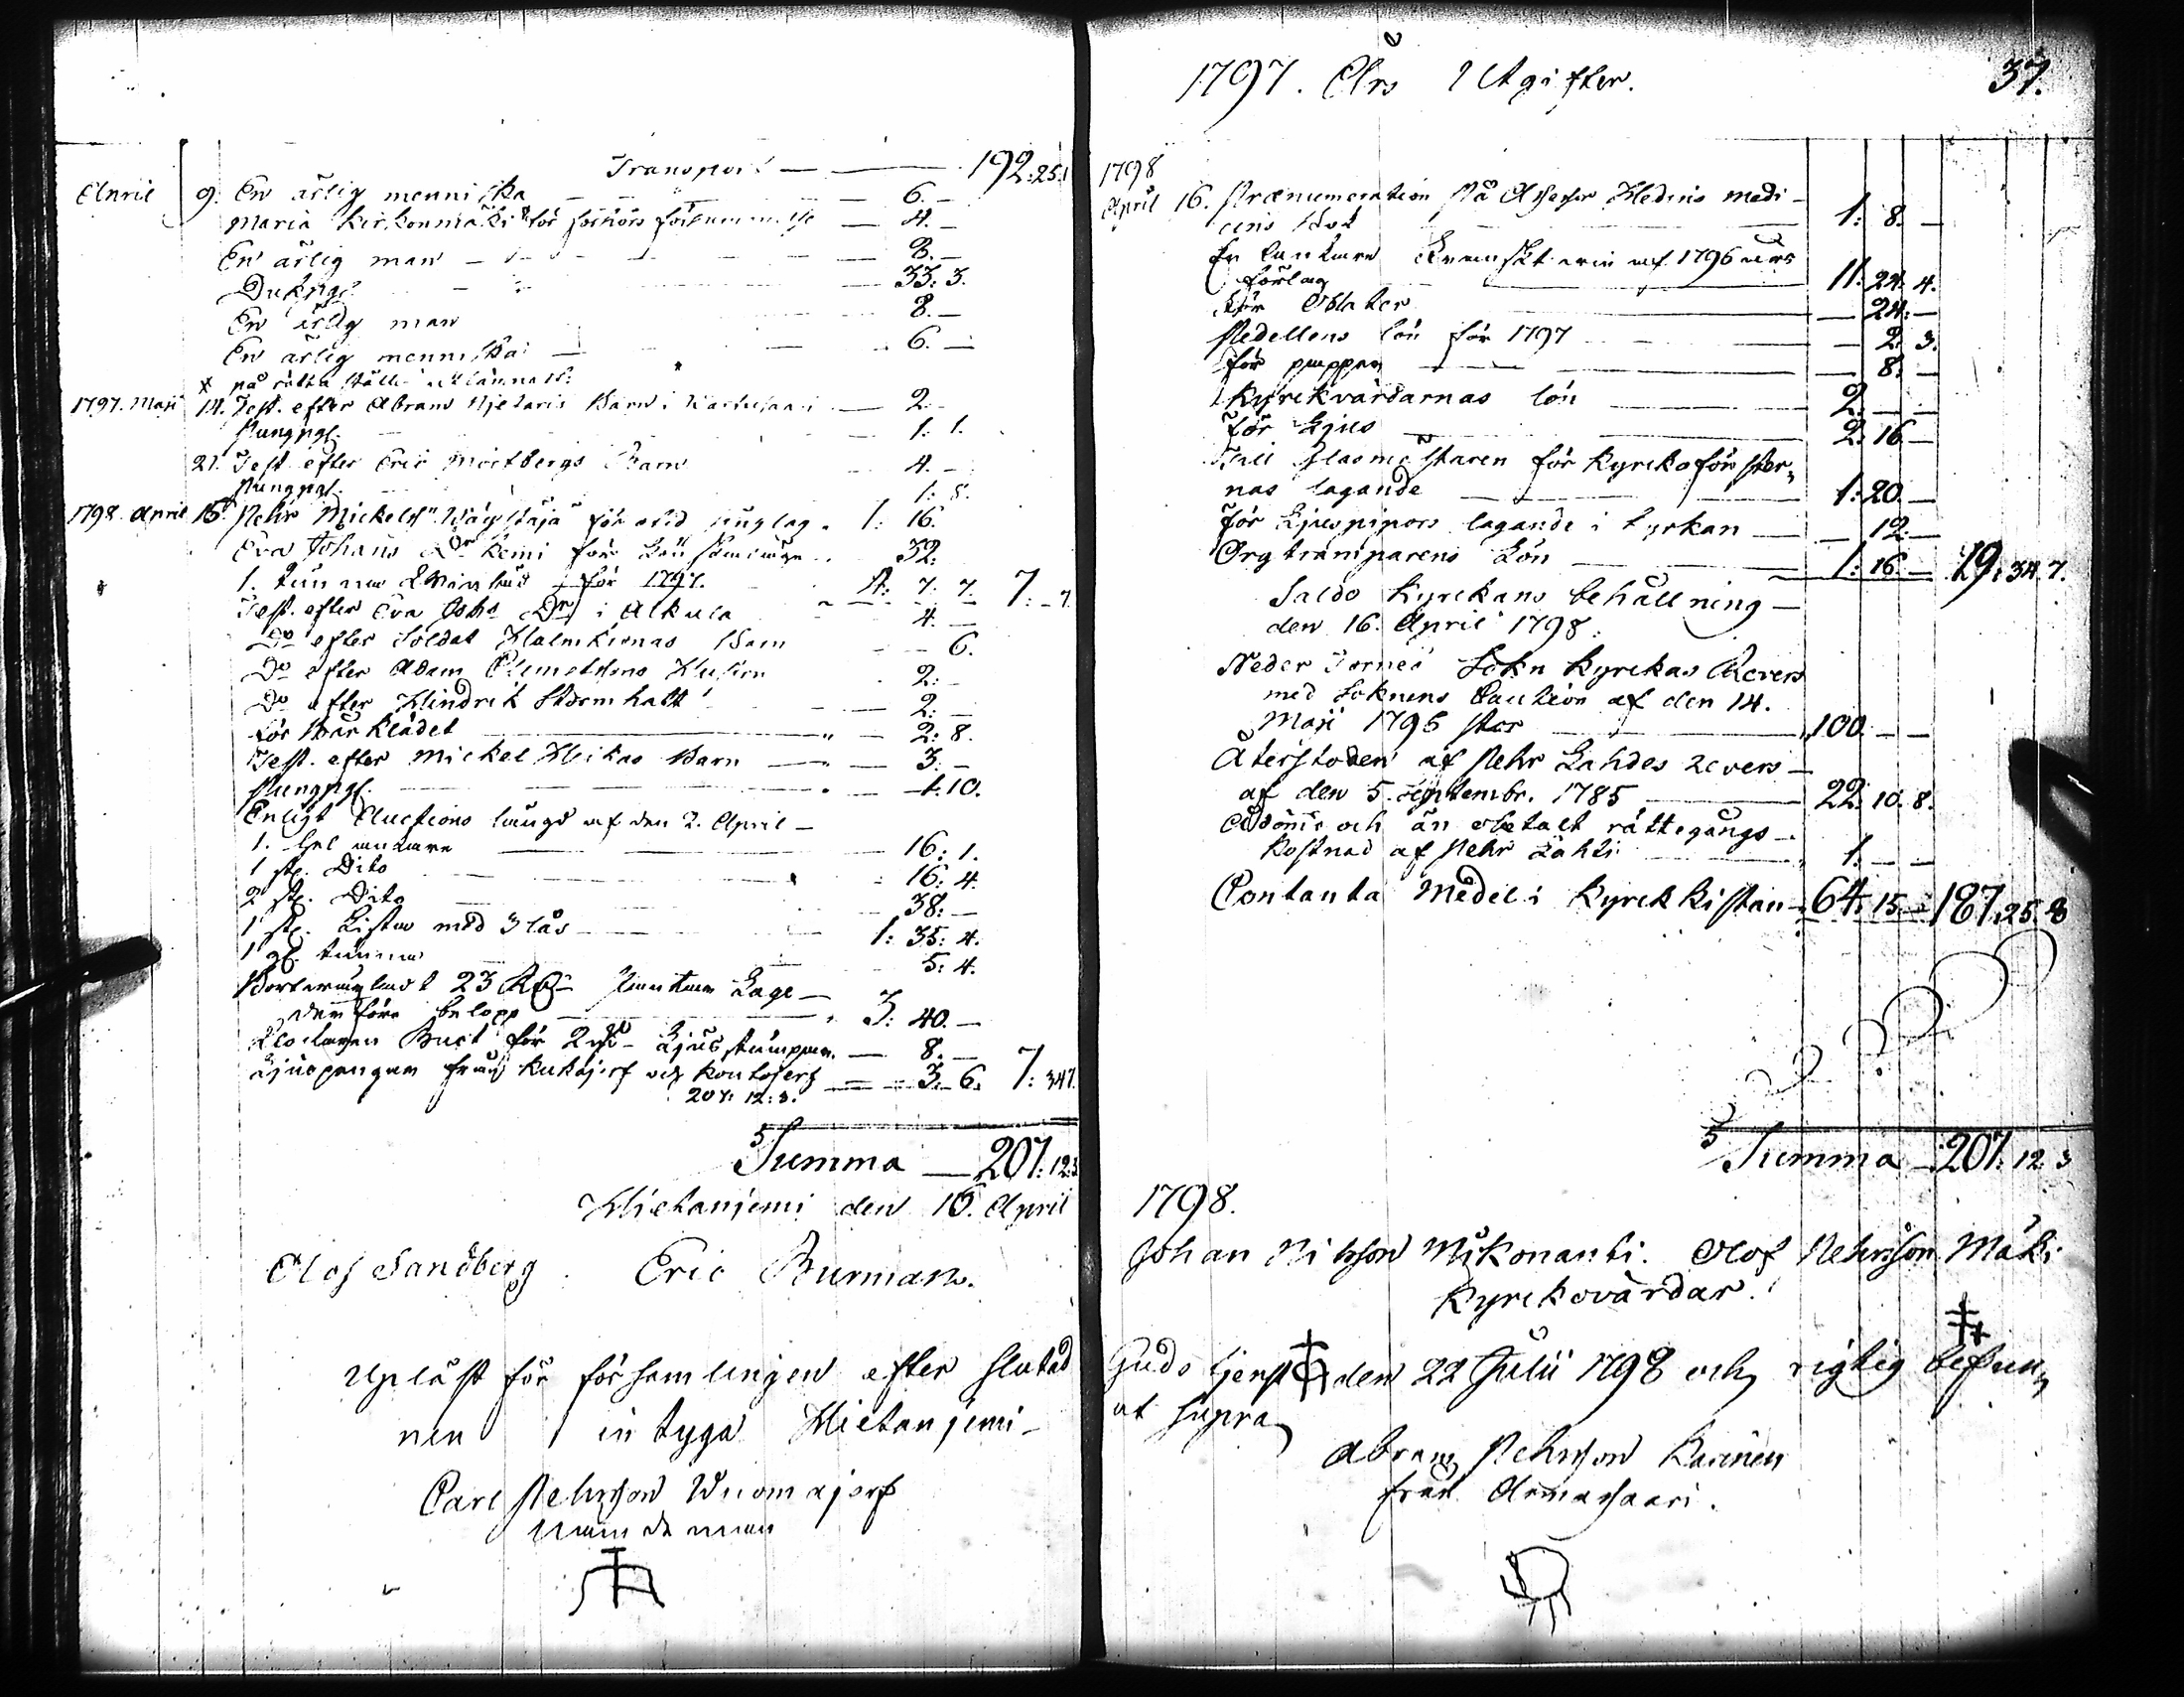 Transport — 192:25:1
April 9. En ärlig menniska — 6. —
Maria Kirkonmäki för förhörs försummelse — 4. —
En ärlig man — 8. —
Dukpgr — 33: 3.
En ärlig man 8. —
En ärlig menniska — 6. —
x på rätta ställe
1797. Maji 14. Test. efter Abram Barn i — 2 —
Pungpgr. — 1: 1.
21. Test. efter Eric Mortbergs Barn — 4. —
Pungpgr. 1: 8.
1798. April 15. Pehr Mickelss. för 1: 16.
Eva Johans Dr Kemi för 32.
1. tunna för 1797. 4: 7: 7. 7: – 7
Test. efter Eva Johs Dr i Alkula 4. —
Do efter Soldat Barn — 6.
Do efter Adam Clemetssons Hustru 2: —
Do efter Hindrik Stormhatt — 2: —
för Bårklädet — 2: 8.
Test. efter Mickel Heikas Barn — 3. —
Pungpgr. — 1:10.
Enligt Auctions längd af den 2. April —
1. hel ankare — 16: 1.
1 st. Dito — 16: 4.
2 st. Dito — 38: —
1 st. Kista med 3 lås — 1: 35: 4.
1 gl. tunna 5: 4.
23 Lage —
derföre belopp — 3: 40. —
Klockaren Burt för 2 Ljusstumpar. — 8. —
Ljuspengar från Kukajerf och Kontojerf — 3. 6. 7: 34 7.
207: 12: 3.
Summa — 207: 12: 3
Hietaniemi den 16. April
Olof Sandberg. Eric Burman.
Upläst för församlingen efter slutad
nen intyga Hietaniemi —
Carl Pehrsson Wuomajerf
Nämndeman
1797. Ars Utgifter. 37.
1798
April 16. Prænumeration På Assessor Hedins medi-
cins bok — 1: 8. —
En Ankare af 1796 års
förlag — 11: 24: 4.
för Oblater — 24: —
Pedellens lön för 1797 — 2: 3.
för papper — 8: —
Kyrckvärdarnas lön — 2. — —
för Ljus — 2: 16 —
Till Glasmästaren för Kyrckofönster,
nas lagande — 1: 20. —
för Ljuspipors lagande i Kyrkan — 12. —
Orgtramparens Lön — 1: 16. — 19: 34 7.
Saldo Kyrckans behållning —
den 16. April 1798.
Neder Torneå Sokn Kyrckas Revers
med Soknens Caution af den 14.
Maji 1796 stor — 100. — —
Återstoden af Pehr Lahdes revers —
af den 5. Septembr. 1785 — 22: 10. 8.
Adömt och än obetalt rättegångs —
Kostnad af Pehr Lahti — 1. — —
Contanta Medel i Kyrckkistan — 64: 15 — 187: 25. 8
Summa — 207: 12: 3
1798.
Johan Nilsson Mikonanti. Olof Pehrsson Mäki
Kyrckovärdar.
Guds tjenst den 22 Julii 1798 och rigtig befun,
ut supra
Abram Pehrsson Karinen
från Armassaari.